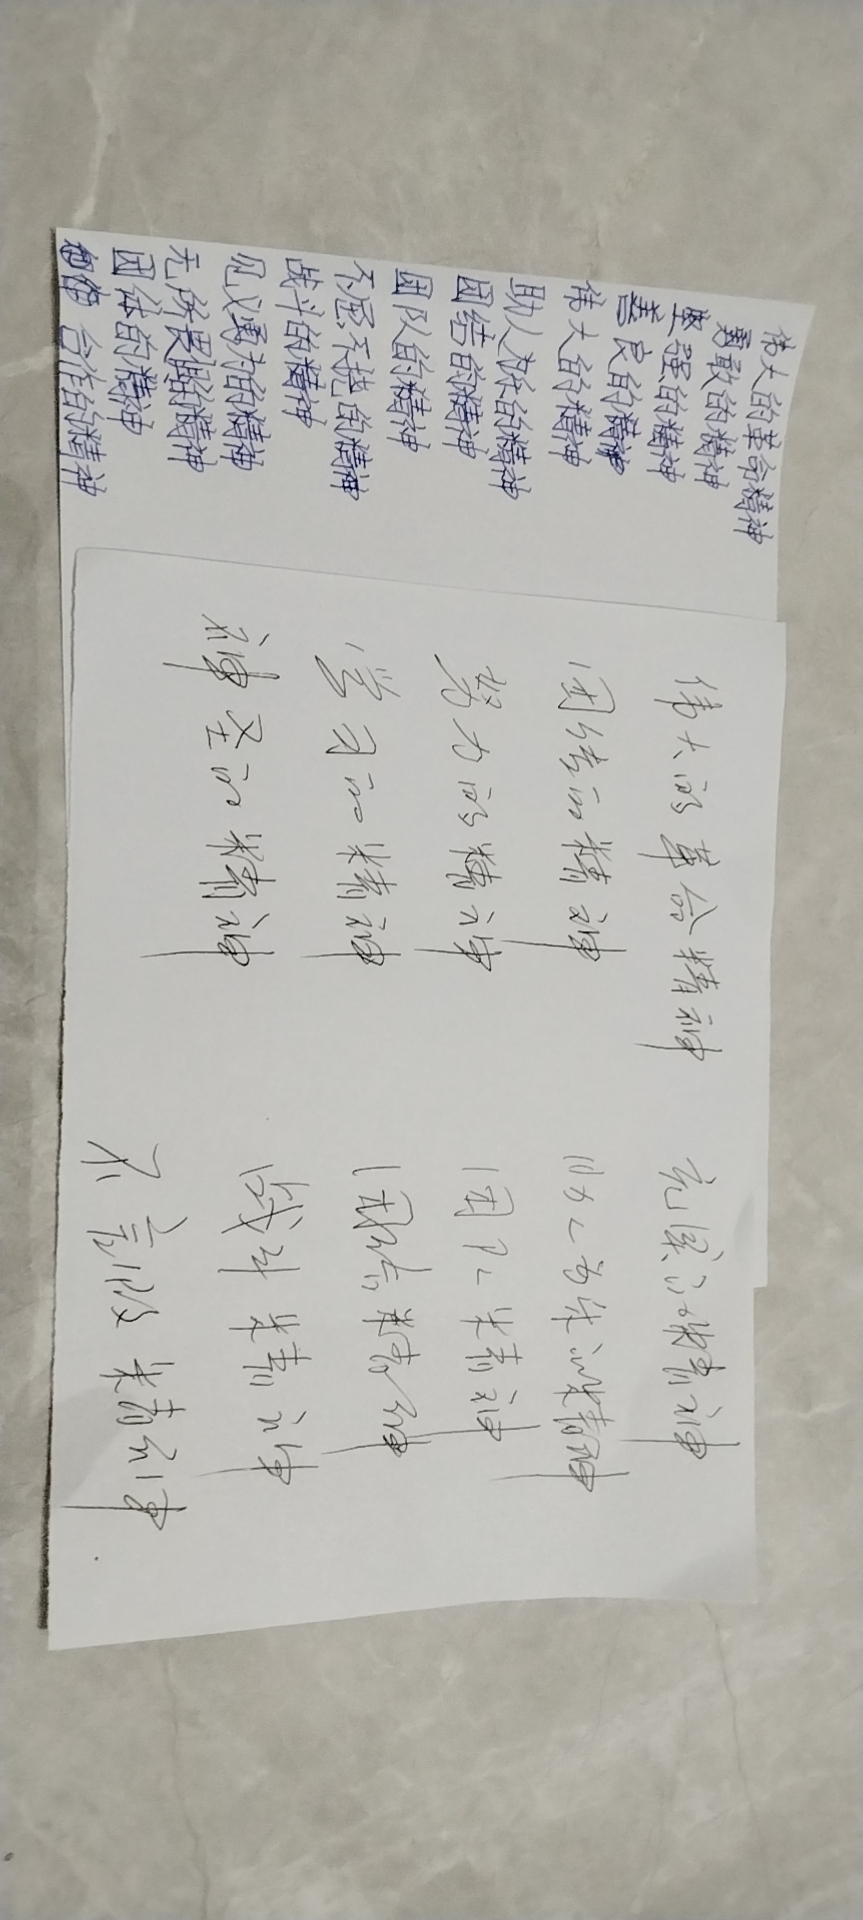 伟大的革命精神
勇敢的精神
坚强的精神
善良的精神
伟大的精神
助人为乐的精神
团结的精神
团队的精神
不屈不挠的精神
战斗的精神
见义勇为的精神
无所畏惧的精神
团体的精神
合作的精神
伟大的革命精神
团结的精神
努力的精神
学习的精神
神圣的精神
精神
助人为乐的精神
团队精神
团结精神
战斗精神
不言败精神